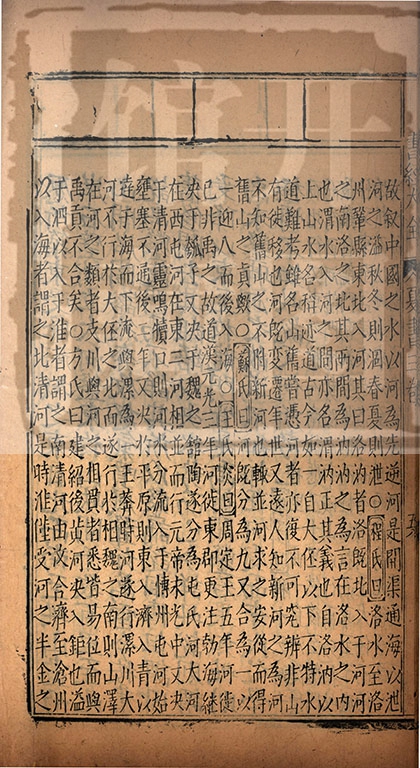 故叙中國之水以河為先逆是開渠通海以
河之溢秋冬則涸春夏則泄○程氏曰洛水至洛
州鞏縣東北入河納者洛既北入于河河
之南洛之北其兩間為汭汭之為言在洛水之内
也渭水入河之間亦名渭汭正其義也自洛汭以
上山水名稱迹道古今如一自大伾以下不特水
道難考雖名山舊嘗憑河者亦復不可究辨非山
有徙移也河既變遷年世又遠人知新河之為河
不知舊山之不附新河也輒並河求之安從而得
舊山之真歟○蘇氏曰河既分為九又合為一以
一迎八而後入海○王氏炎曰周定王五年河徙
已非禹之故道漢元光三年河徙東郡更注勃海繼
決于瓠子又決于魏之館陶遂分為屯氏河大河
在西屯河在東二河相並而行元帝永光中又决
于清河靈鳴犢口則河水分流入于博州屯河始
壅塞不通後二年又决於平原則東入濟入青以
達于海而下流與漯為一王莽時河遂行漯川大
河不行於大伾之北而遂行於相魏之南則山澤
在河之瀕者支川與河之相貫者悉皆易位而與
禹貢不合矣○方氏曰建紹後黃河央入鉅也溢
于泗以入于淮者謂之南清河由汶合濟至滄州
以入海者謂之北清河是時淮僅受河之半金之